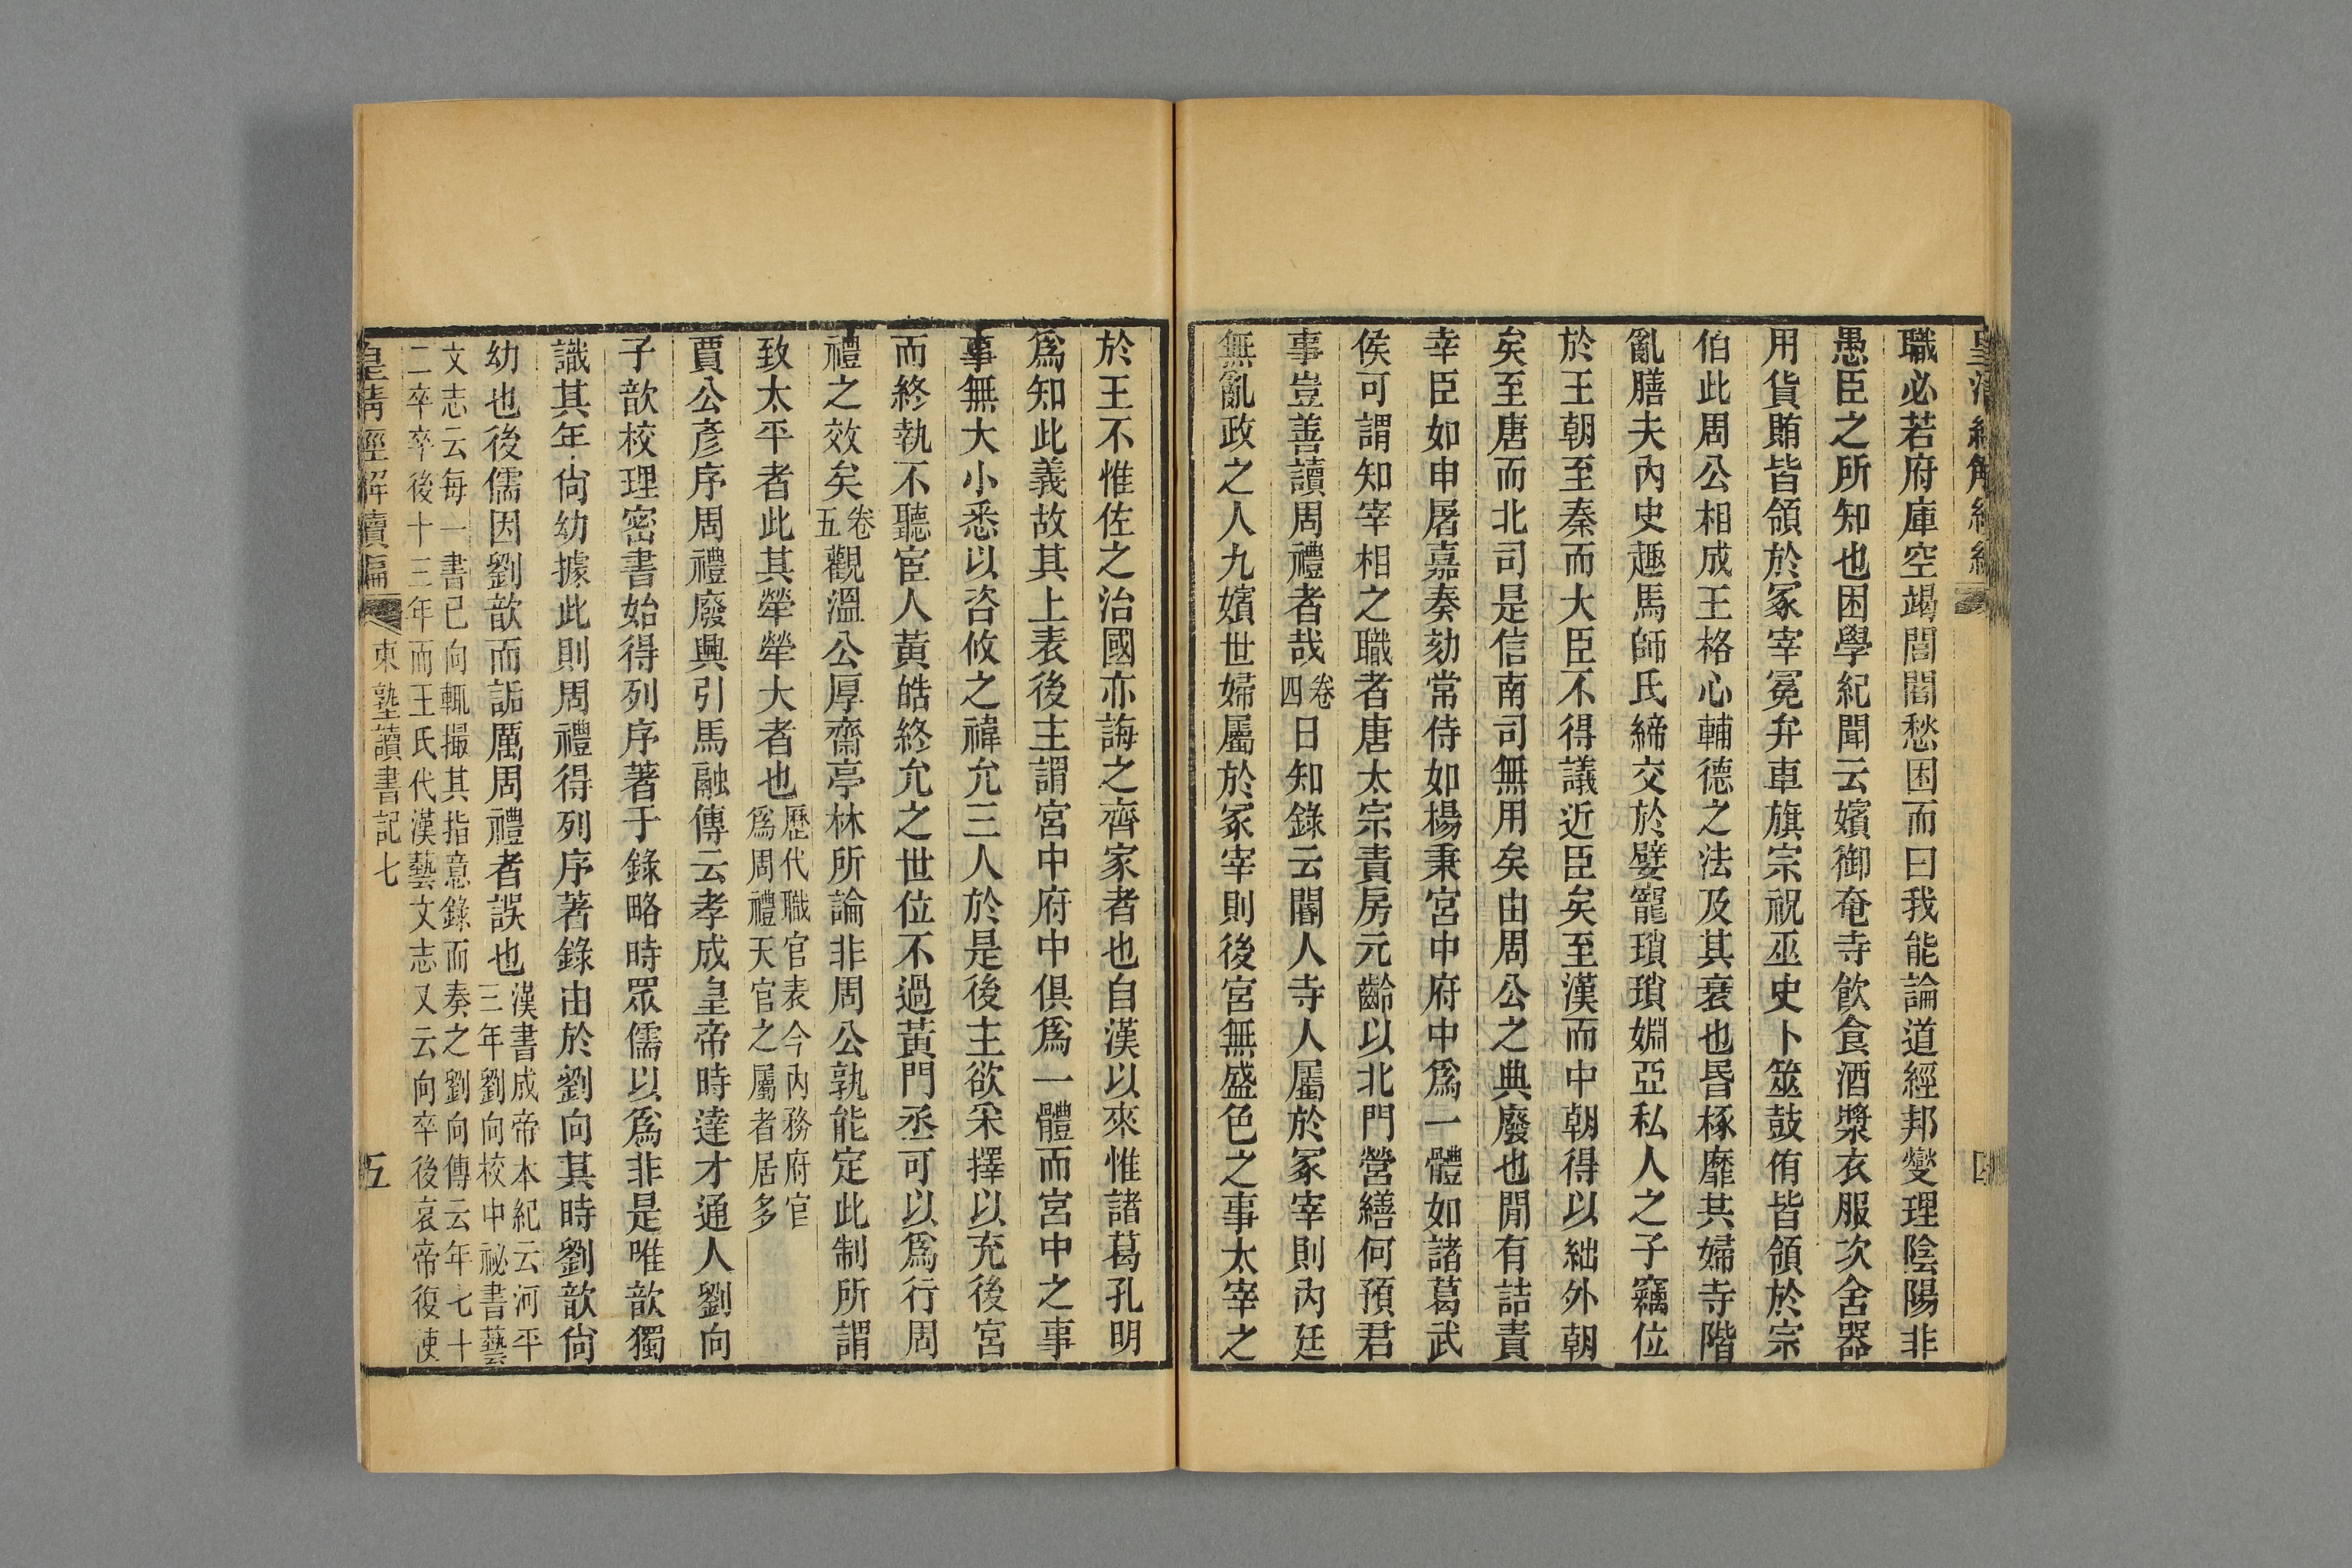 職必若府庫空竭閭閻愁困而曰我能論道經邦燮理陰陽非
愚臣之所知也困學紀聞云嬪御奄寺飲食酒漿衣服次舍器
用貨賄皆領於冢宰冕弁車旗宗祝巫史卜筮鼓侑皆領於宗
伯此周公相成王格心輔德之法及其衰也昬椓靡共婦寺階
亂膳夫內史趣馬師氏締交於嬖寵瑣瑣婣亞私人之子竊位
於王朝至秦而大臣不得議近臣矣至漢而中朝得以絀外朝
矣至唐而北司是信南司無用矣由周公之典廢也閒有詰責
幸臣如申屠嘉奏劾常侍如楊秉宮中府中爲一體如諸葛武
侯可謂知宰相之職者唐太宗責房元齡以北門營繕何預君
事豈善讀周禮者哉卷四日知錄云閽人寺人屬於冢宰則內廷
無亂政之人九嬪世婦屬於冢宰則後宮無盛色之事太宰之
於王不惟佐之治國亦誨之齊家者也自漢以來惟諸葛孔明
爲知此義故其上表後主謂宮中府中俱爲一體而宮中之事
事無大小悉以咨攸之禕允三人於是後主欲采擇以充後宮
而終執不聽宦人黃皓終允之世位不過黃門丞可以爲行周
禮之效矣卷五觀溫公厚齋亭林所論非周公孰能定此制所謂
致太平者此其犖犖大者也歷代職官表今內務府官爲周禮天官之屬者居多
賈公彥序周禮廢興引馬融傳云孝成皇帝時達才通人劉向
子歆校理密書始得列序著于錄略時眾儒以爲非是唯歆獨
識其年尙幼據此則周禮得列序著錄由於劉向其時劉歆尙
幼也後儒因劉歆而詬厲周禮者誤也漢書成帝本紀云河平三年劉向校中祕書藝
文志云每一書已向輒撮其指意錄而奏之劉向傳云年七十二卒卒後十三年而王氏代漢藝文志又云向卒後哀帝復使
皇清經解續編 東塾讀書記七 五